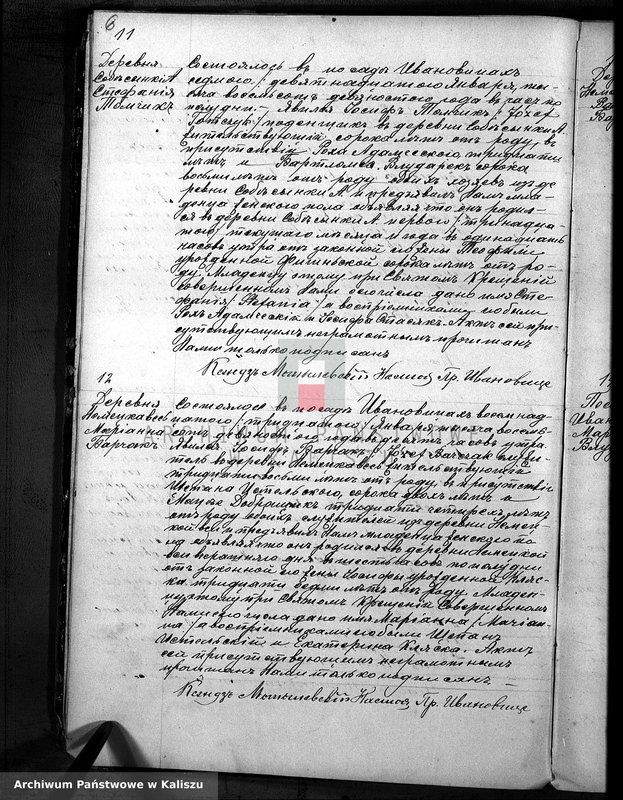 6
11
Деревня
Собѣсенки А
Стефанія
Томчикъ
Состоялось въ посадѣ Ивановицахъ
седмого / девятнадцатого Января, ты-
сяча восемьсотъ девяностого года въ часъ по
полудни. – Явился Іосифъ Томчикъ / Józef
Tomczyk / поденщикъ въ деревни Собѣсенки А
жительствующій, сорока лѣтъ отъ роду, въ
присутствіи Роха Адамсского, тридцати
лѣтъ и Вартломея сорока
восьми лѣтъ отъ роду обоихъ хозяевъ изъ де-
ревни Собѣсенки А и предъявилъ Намъ мла-
денца женского пола объявляя что онъ родил-
ся въ деревни Собѣсенки А первого / тринадца-
того / текущаго мѣсяца и года въ одинадцать
часовъ утра отъ законной его жены Теофили
урожденной сорока лѣтъ отъ ро-
ду. Младенцу этому при Святомъ Крещеніи
совершенномъ Нами сего числа дано имя Сте-
фанія / Stefania / а воспріемниками его были
Рохъ Адамсскій и Іосифа Стасякъ. Актъ сей при-
сутствующимъ неграмотнымъ прочитанъ
Нами только подписанъ
Ксендзъ Мотылевскій Настоя. Пр. Ивановице
12
Деревня
Немецкавесь
Маріанна
Варчакъ
Состоялось въ посадѣ Ивановицахъ восемнад-
цатого / тридцатого / Января, тысяча восемь-
сотъ девяностого года въ девять часовъ утра
явился Іосифъ Варчакъ / Józef Warczak / служи-
тель въ деревни Немецкавесь жительствующій
тридцати восьми лѣтъ отъ роду, въ присутствіи
Щепана Цетельского, сорока двохъ лѣтъ и
тридцати четырехъ лѣтъ
отъ роду обоихъ служителей изъ деревни Немец-
кой веси и предъявилъ Намъ младенца женского по-
ла объявляя что онъ родился въ деревни Немецкой
веси вчерашняго дня въ шесть часовъ по полудни
отъ законной его жены Іосифы урожденной Кляс-
ка тридцати седми лѣтъ отъ роду. Младен-
цу этому при Святомъ Крещеніи совершенномъ
Нами сего числа дано имя Маріанна / Marian-
na / а воспріемниками его были Щепанъ
Цетельскій и Екатерина Кляска. Актъ
сей присутствующимъ неграмотнымъ
прочитанъ Нами только подписанъ
Ксендзъ Мотылевскій Настоя. Пр. Ивановице
Archiwum Państwowe w Kaliszu